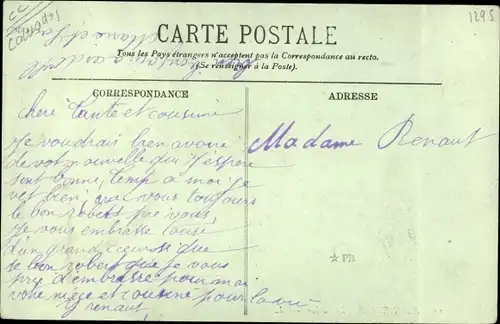 Calvados
1295
CARTE POSTALE
Tous les Pays étrangers n'acceptent pas la Correspondance au recto.
(Se renseigner à la Poste).
CORRESPONDANCE
ADRESSE
chere Tante et cousine
Je voudrais bien avoire
de vot nouvelle que J'espere
sont bonne, temp a moi je
vet bien, avec vous toujours
le bon robert pre vous,
Je vous embrasse touse
d'un grand cœur si que
le bon robert que je vous
prie d'embrasse pour moi
votre niese et cousine pour la vie
G renaut
Madame Renaut
☆ PB